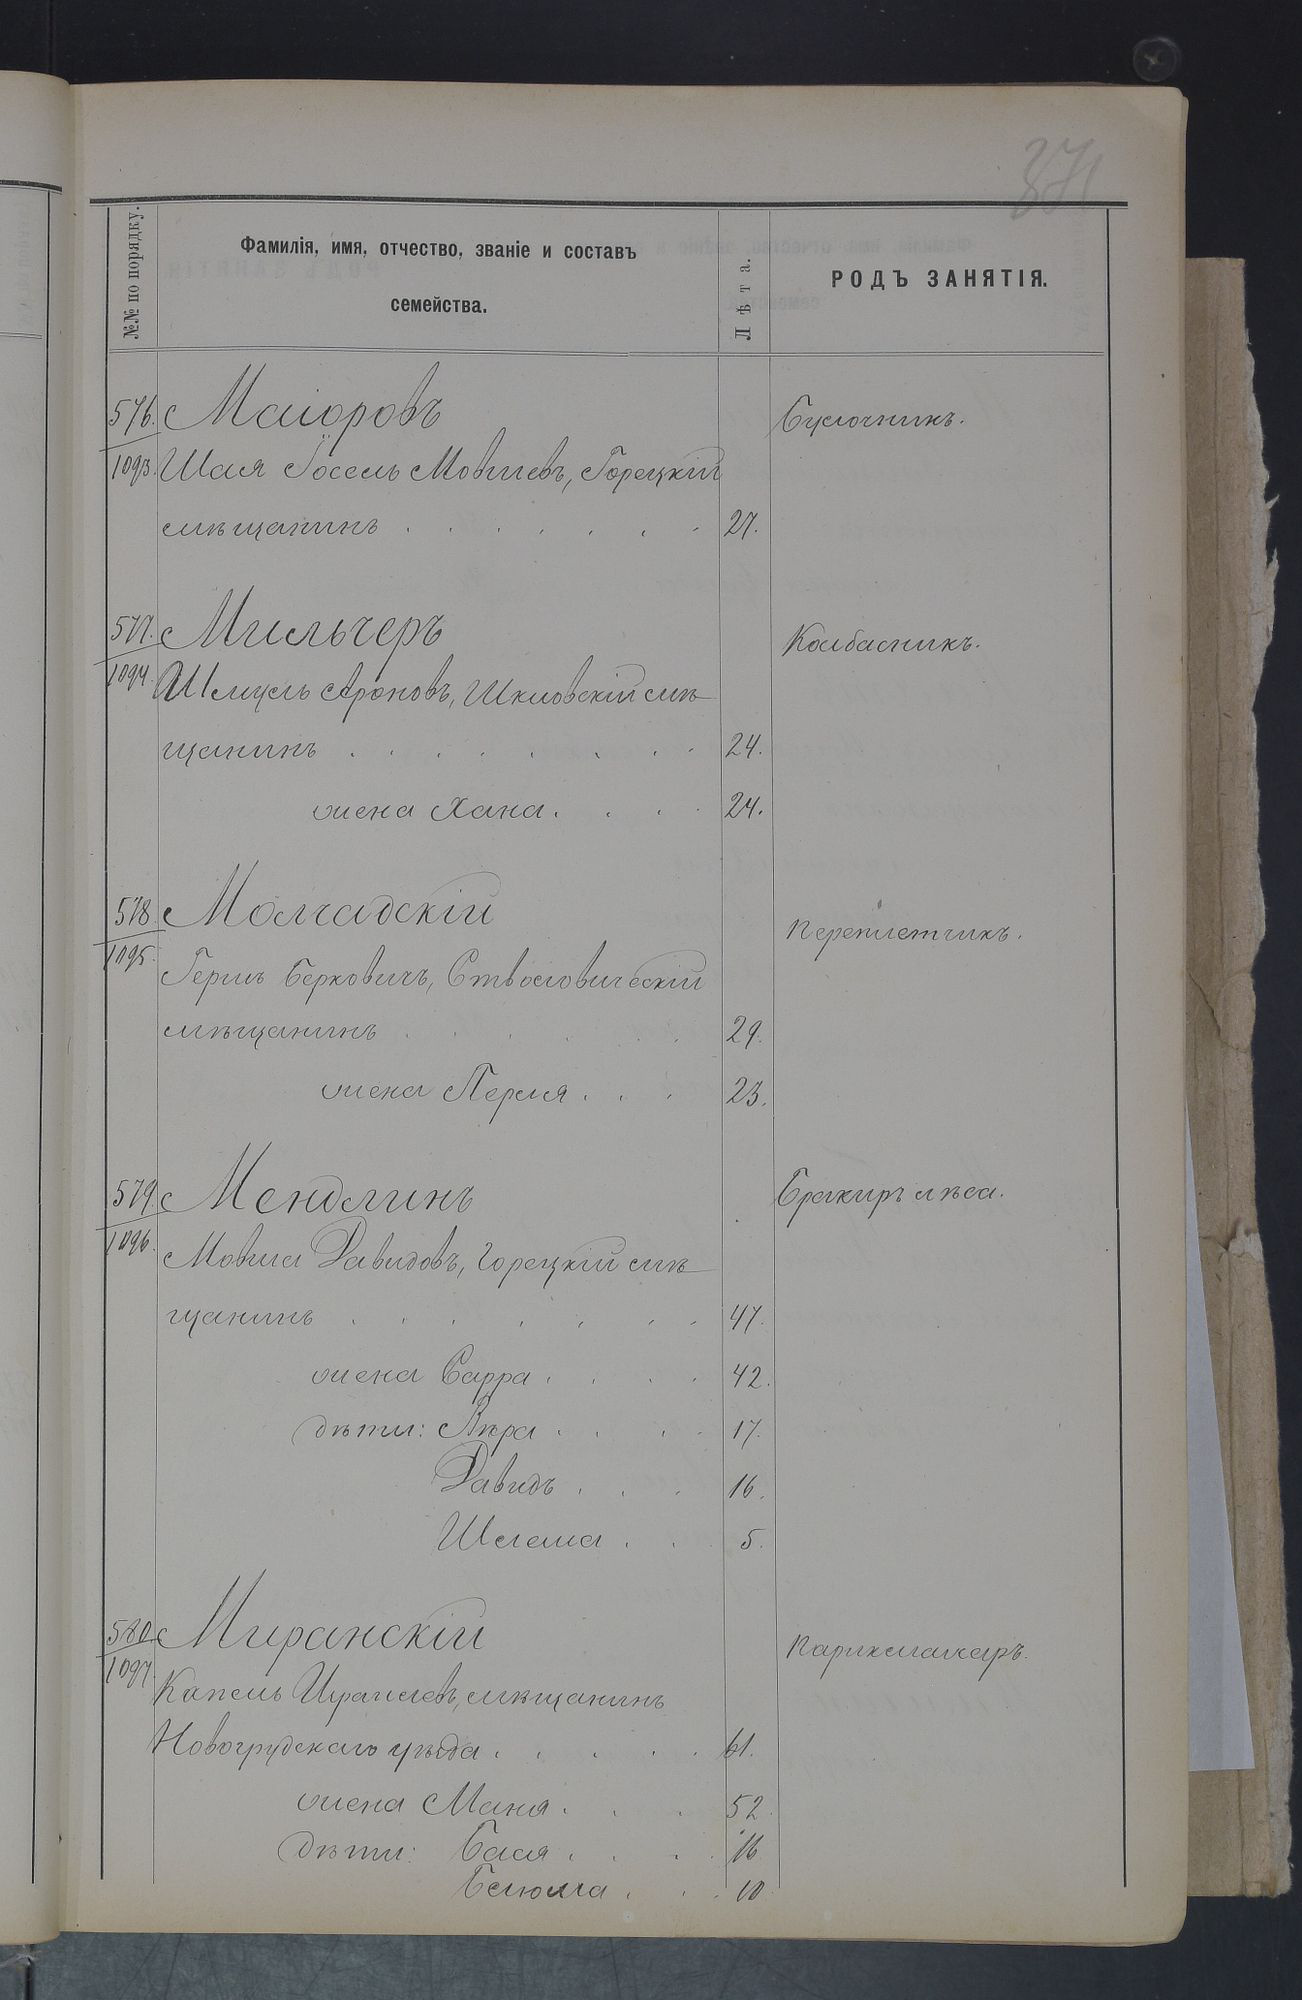 371
№№ по порядку.
Фамилія, имя, отчество, званіе и составъ
семейства.
Лѣта.
РОДЪ ЗАНЯТІЯ.
576. Маіоровъ Булочникъ.
1093 Шая Іосель Мовшевъ, Горецкій
мѣщанинъ . . . . . . . 27.
577. Мильчеръ Колбасникъ.
1094. Шмуель Ароновъ, Шкловскій мѣ
щанинъ . . . . . . . 24.
жена Хана. . . . 24.
578. Молчадскій Переплетчикъ.
1095. Герць Берковичъ,
мѣщанинъ . . . . . 29.
жена Перля . . . 23.
579. Мендлинъ Бракиръ лѣса.
1096. Мовша Давидовъ, Горецкій мѣ
щанинъ . . . . . . . 47.
жена Сарра . . . . 42.
дѣти: Вѣра . . . . 17.
Давидъ . . . 16.
Шлема . . . 5.
580. Миранскій Парихмахеръ.
1097. Капель Израилевъ, мѣщанинъ
Новогрудскаго уѣзда . . . . . 61.
жена Маня . . . 52.
дѣти: Бася . . . . 16
Блюма . . . 10